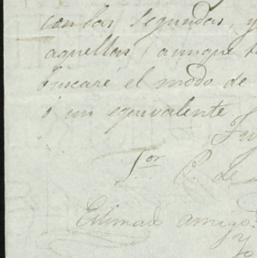 con las segundas, y
aquellas, aunque
buscaré el modo de
ó un equivalente
Sor C. de
Estimado amigo: